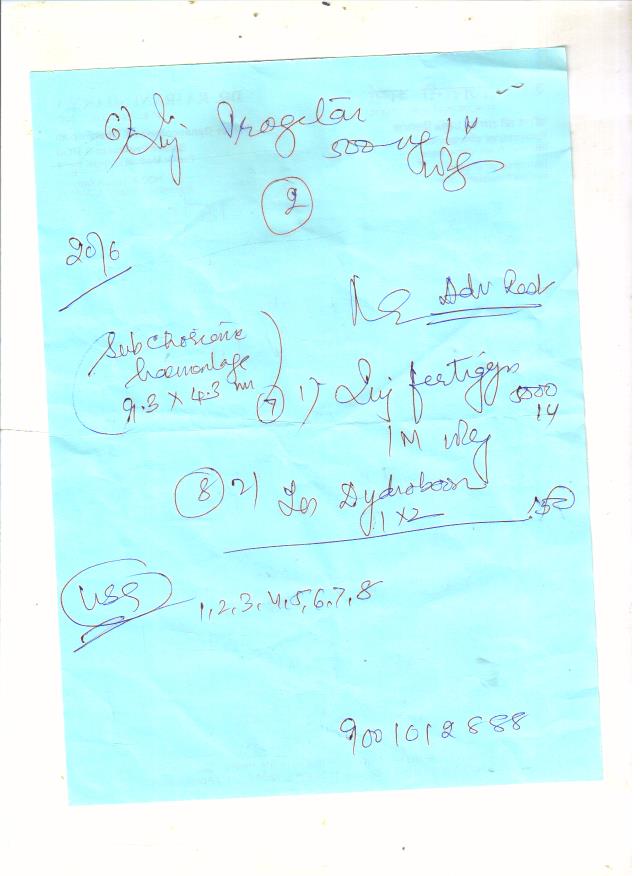 6) Inj Progetan
500 mg IM
wkly
2
20/6
Adv Rest
Subchorionic
haemorrhage
9.3 x 4.3 mm
7 1) Inj fertigyn 5000
14
IM wkly
8 2) Tab Dydroboon
1 x 2
USG 1, 2, 3, 4, 5, 6, 7, 8
9001012888